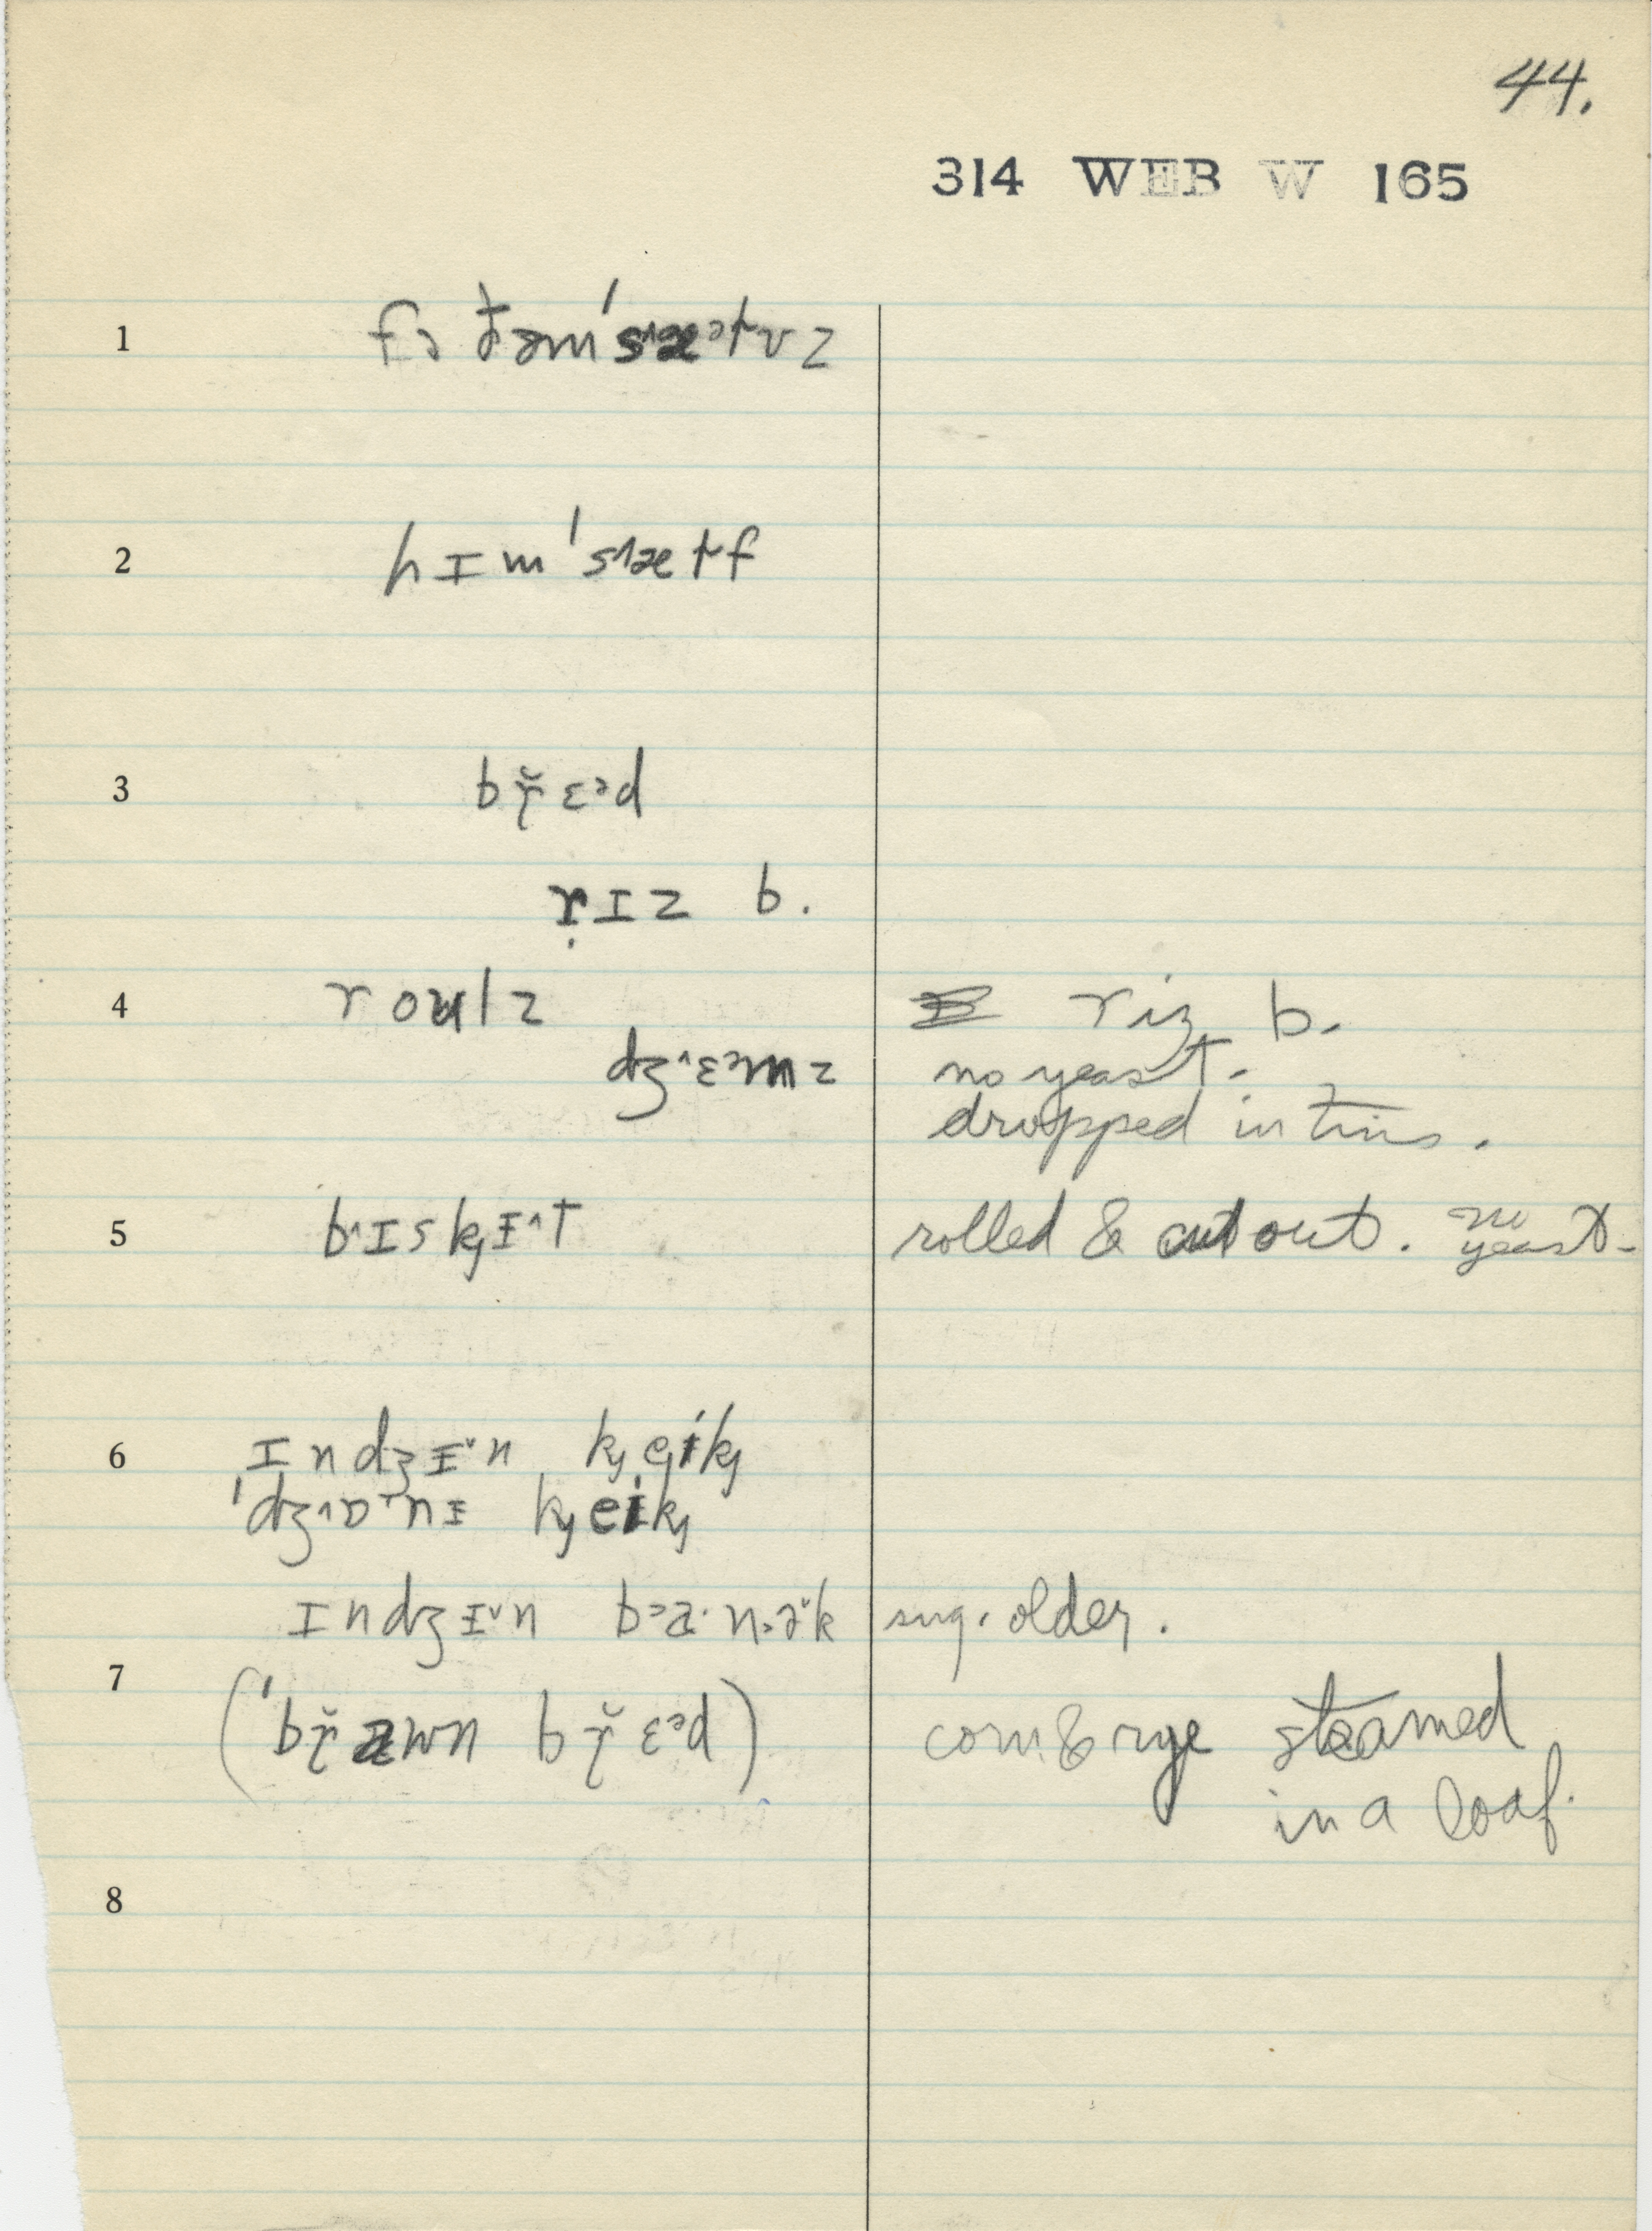 44.
314 WEB W 165
1 fə ðəmˈsᴧæᵊɫvz
2 hɪmˈsᴧæɫf
3 bɽ̆ɛᵊd
ṛɪz b.
4 roulz riz b.
dʒ^ɛᵊmz no yeast.
dropped in tins.
5 b^ɪskɪ̵^t rolled & cut out. no yeast.
6 ɪndʒɪ̵ˇn keik
ˈdʒ^ɒnɪ̵ keik
ɪndʒɪ̵ˇn sug. older.
7 (ˈbɽ̆awn bɽ̆ɛᵊd) corn & rye steamed
in a loaf.
8